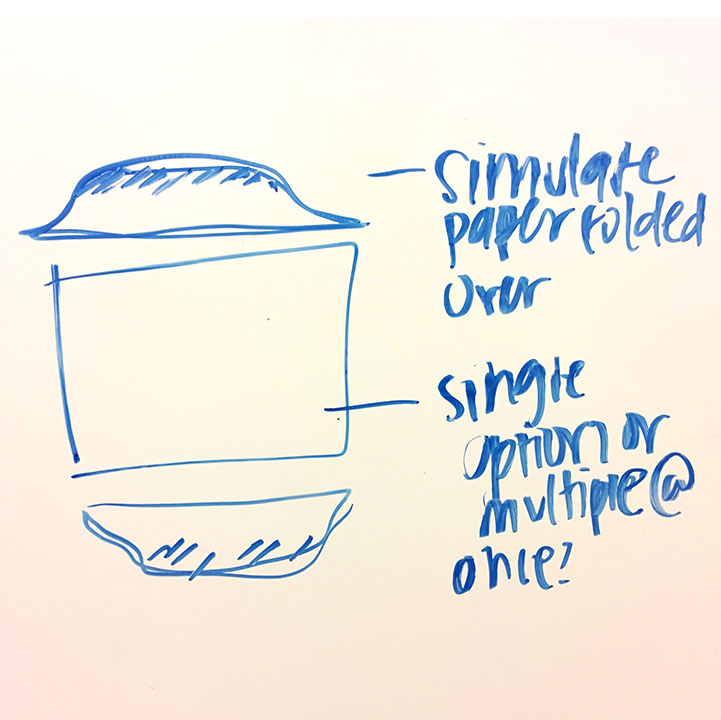 simulate
paper folded
over
single
option or
multiple @
once?